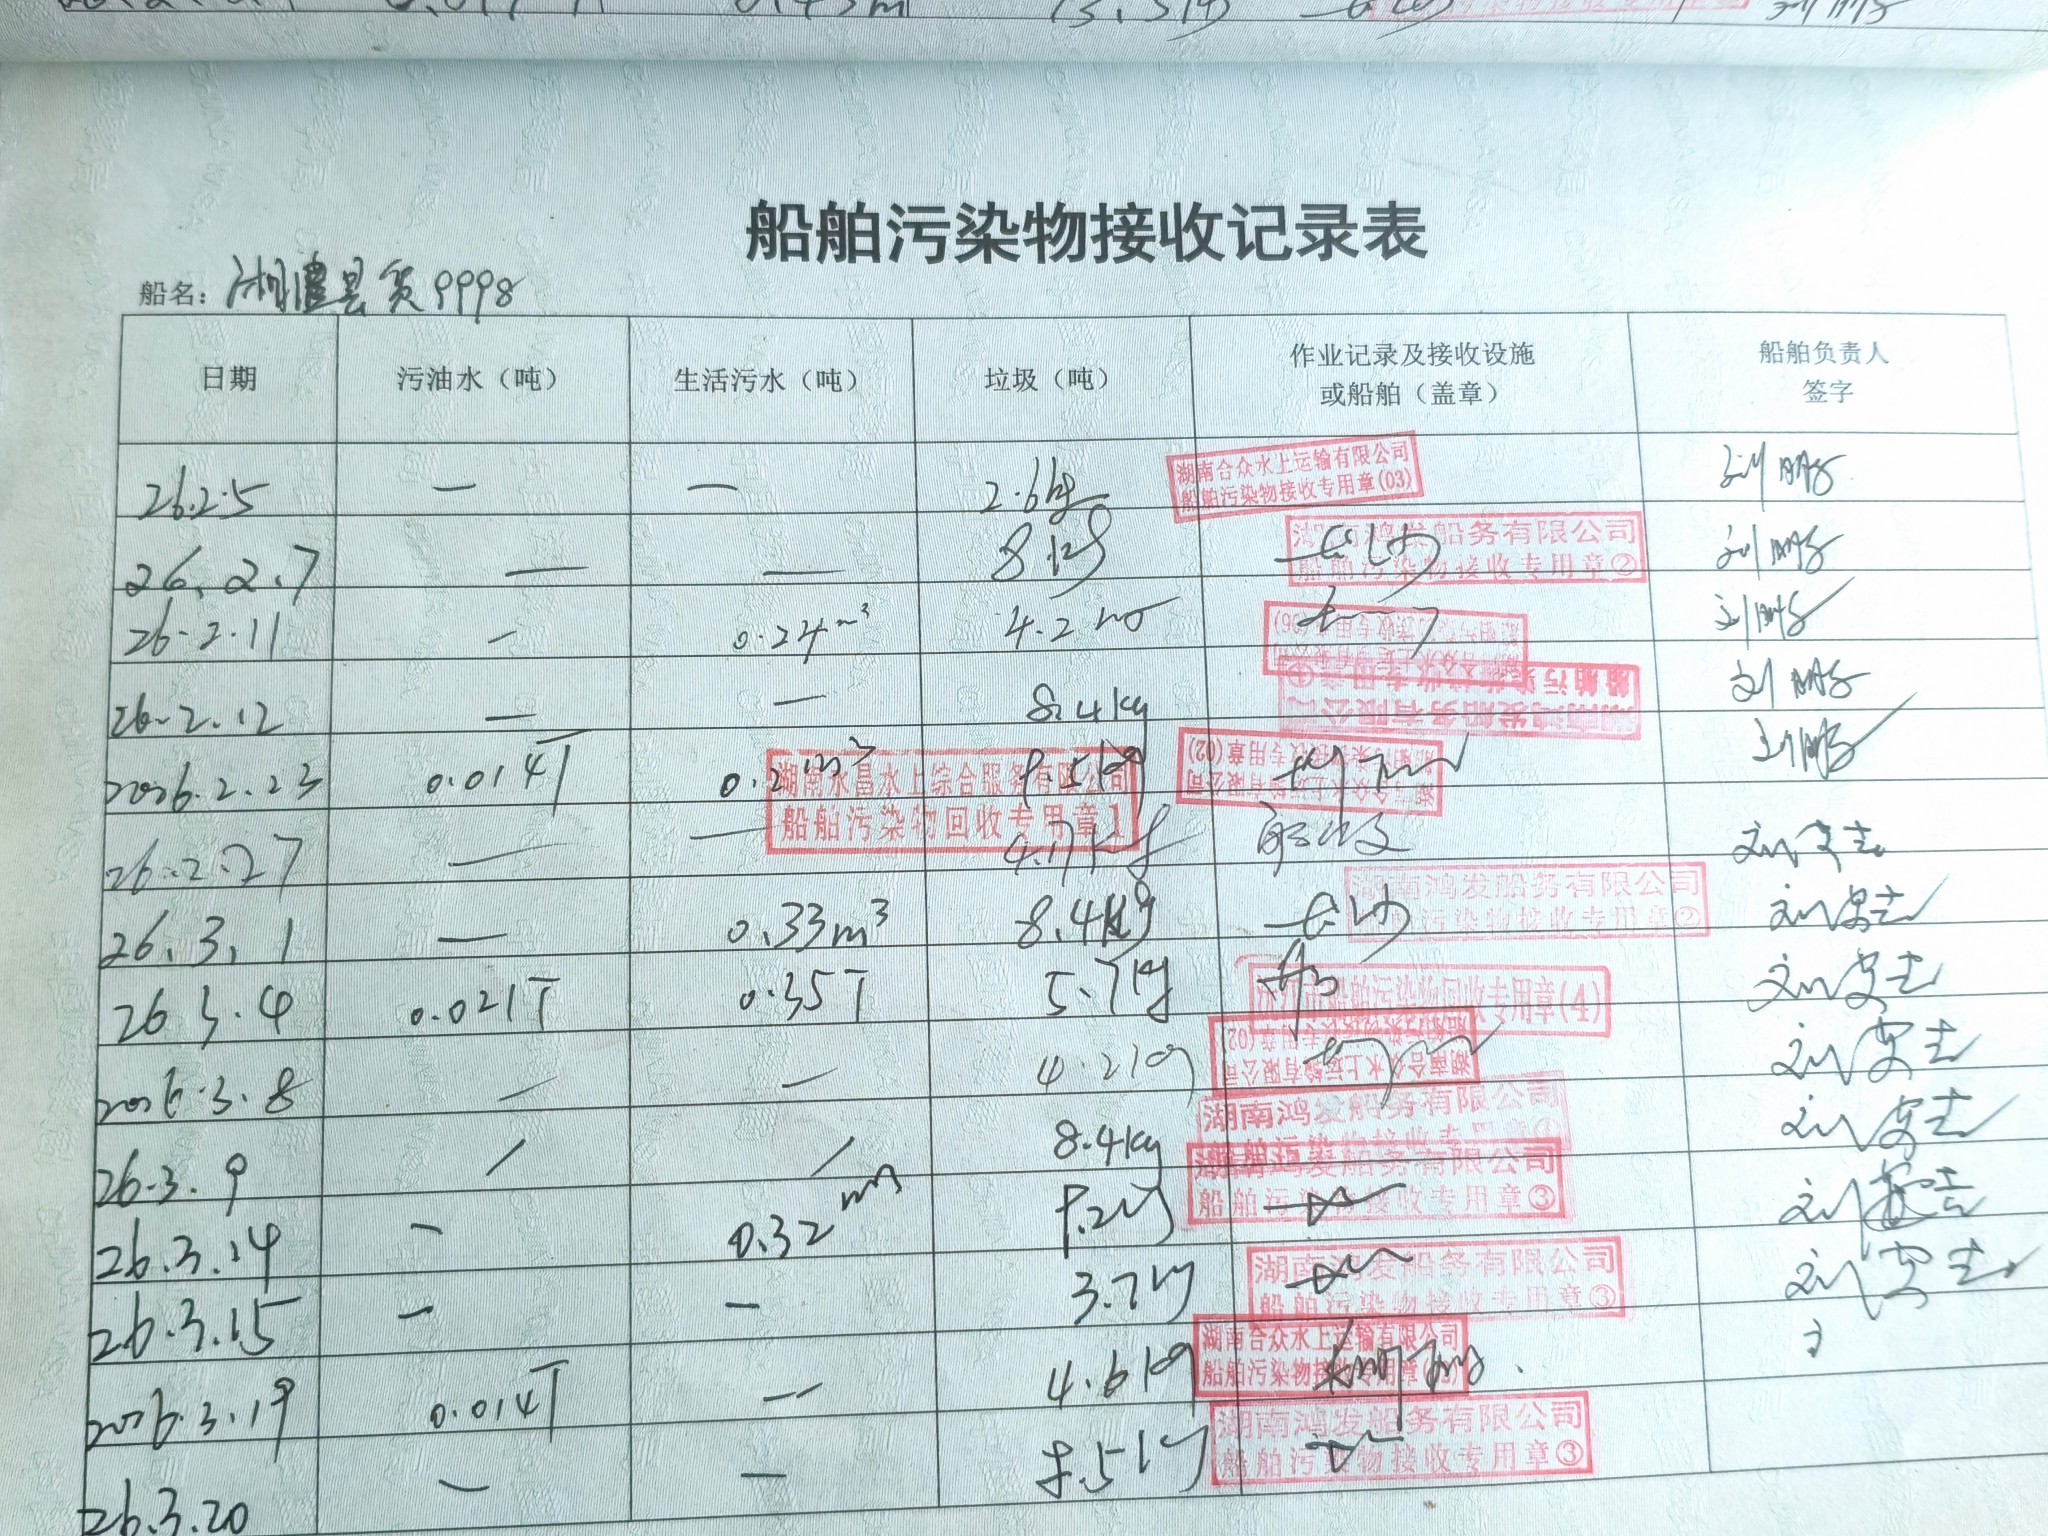 船舶污染物接收记录表
船名：湘澧县货9998
日期 污油水（吨） 生活污水（吨） 垃圾（吨） 作业记录及接收设施或船舶（盖章） 船舶负责人签字
26.2.5 — — 2.6kg 湖南合众水上运输有限公司 船舶污染物接收专用章(03) 刘鹏
26.2.7 — — 8kg 长沙 湖南鸿发船务有限公司 船舶污染物接收专用章② 刘鹏
26.2.11 — 0.24m³ 4.2 刘鹏
26.2.12 — — 8.4kg 湖南鸿发船务有限公司 船舶污染物接收专用章 刘鹏
2026.2.23 0.014T 0.2m³ 湖南合众水上运输有限公司 船舶污染物接收专用章(02) 刘鹏
湖南永昌水上综合服务有限公司
船舶污染物回收专用章1
26.2.27 — — 4.7kg 刘安志
26.3.1 — 0.33m³ 8.4kg 长沙 湖南鸿发船务有限公司 船舶污染物接收专用章② 刘安志
26.3.4 0.021T 0.35T 5.7kg 船舶污染物回收专用章(4) 刘安志
2026.3.8 — — 4.2kg 湖南合众水上运输有限公司 船舶污染物接收专用章(02) 刘安志
26.3.9 / / 8.4kg 湖南鸿发船务有限公司 刘安志
26.3.14 — 0.32m³ 湖南鸿发船务有限公司 船舶污染物接收专用章③ 刘安志
26.3.15 — — 3.7kg 湖南鸿发船务有限公司 船舶污染物接收专用章③ 刘安志
2026.3.19 0.014T — 4.6kg 湖南合众水上运输有限公司 船舶污染物接收专用章
26.3.20 — — 湖南鸿发船务有限公司 船舶污染物接收专用章③